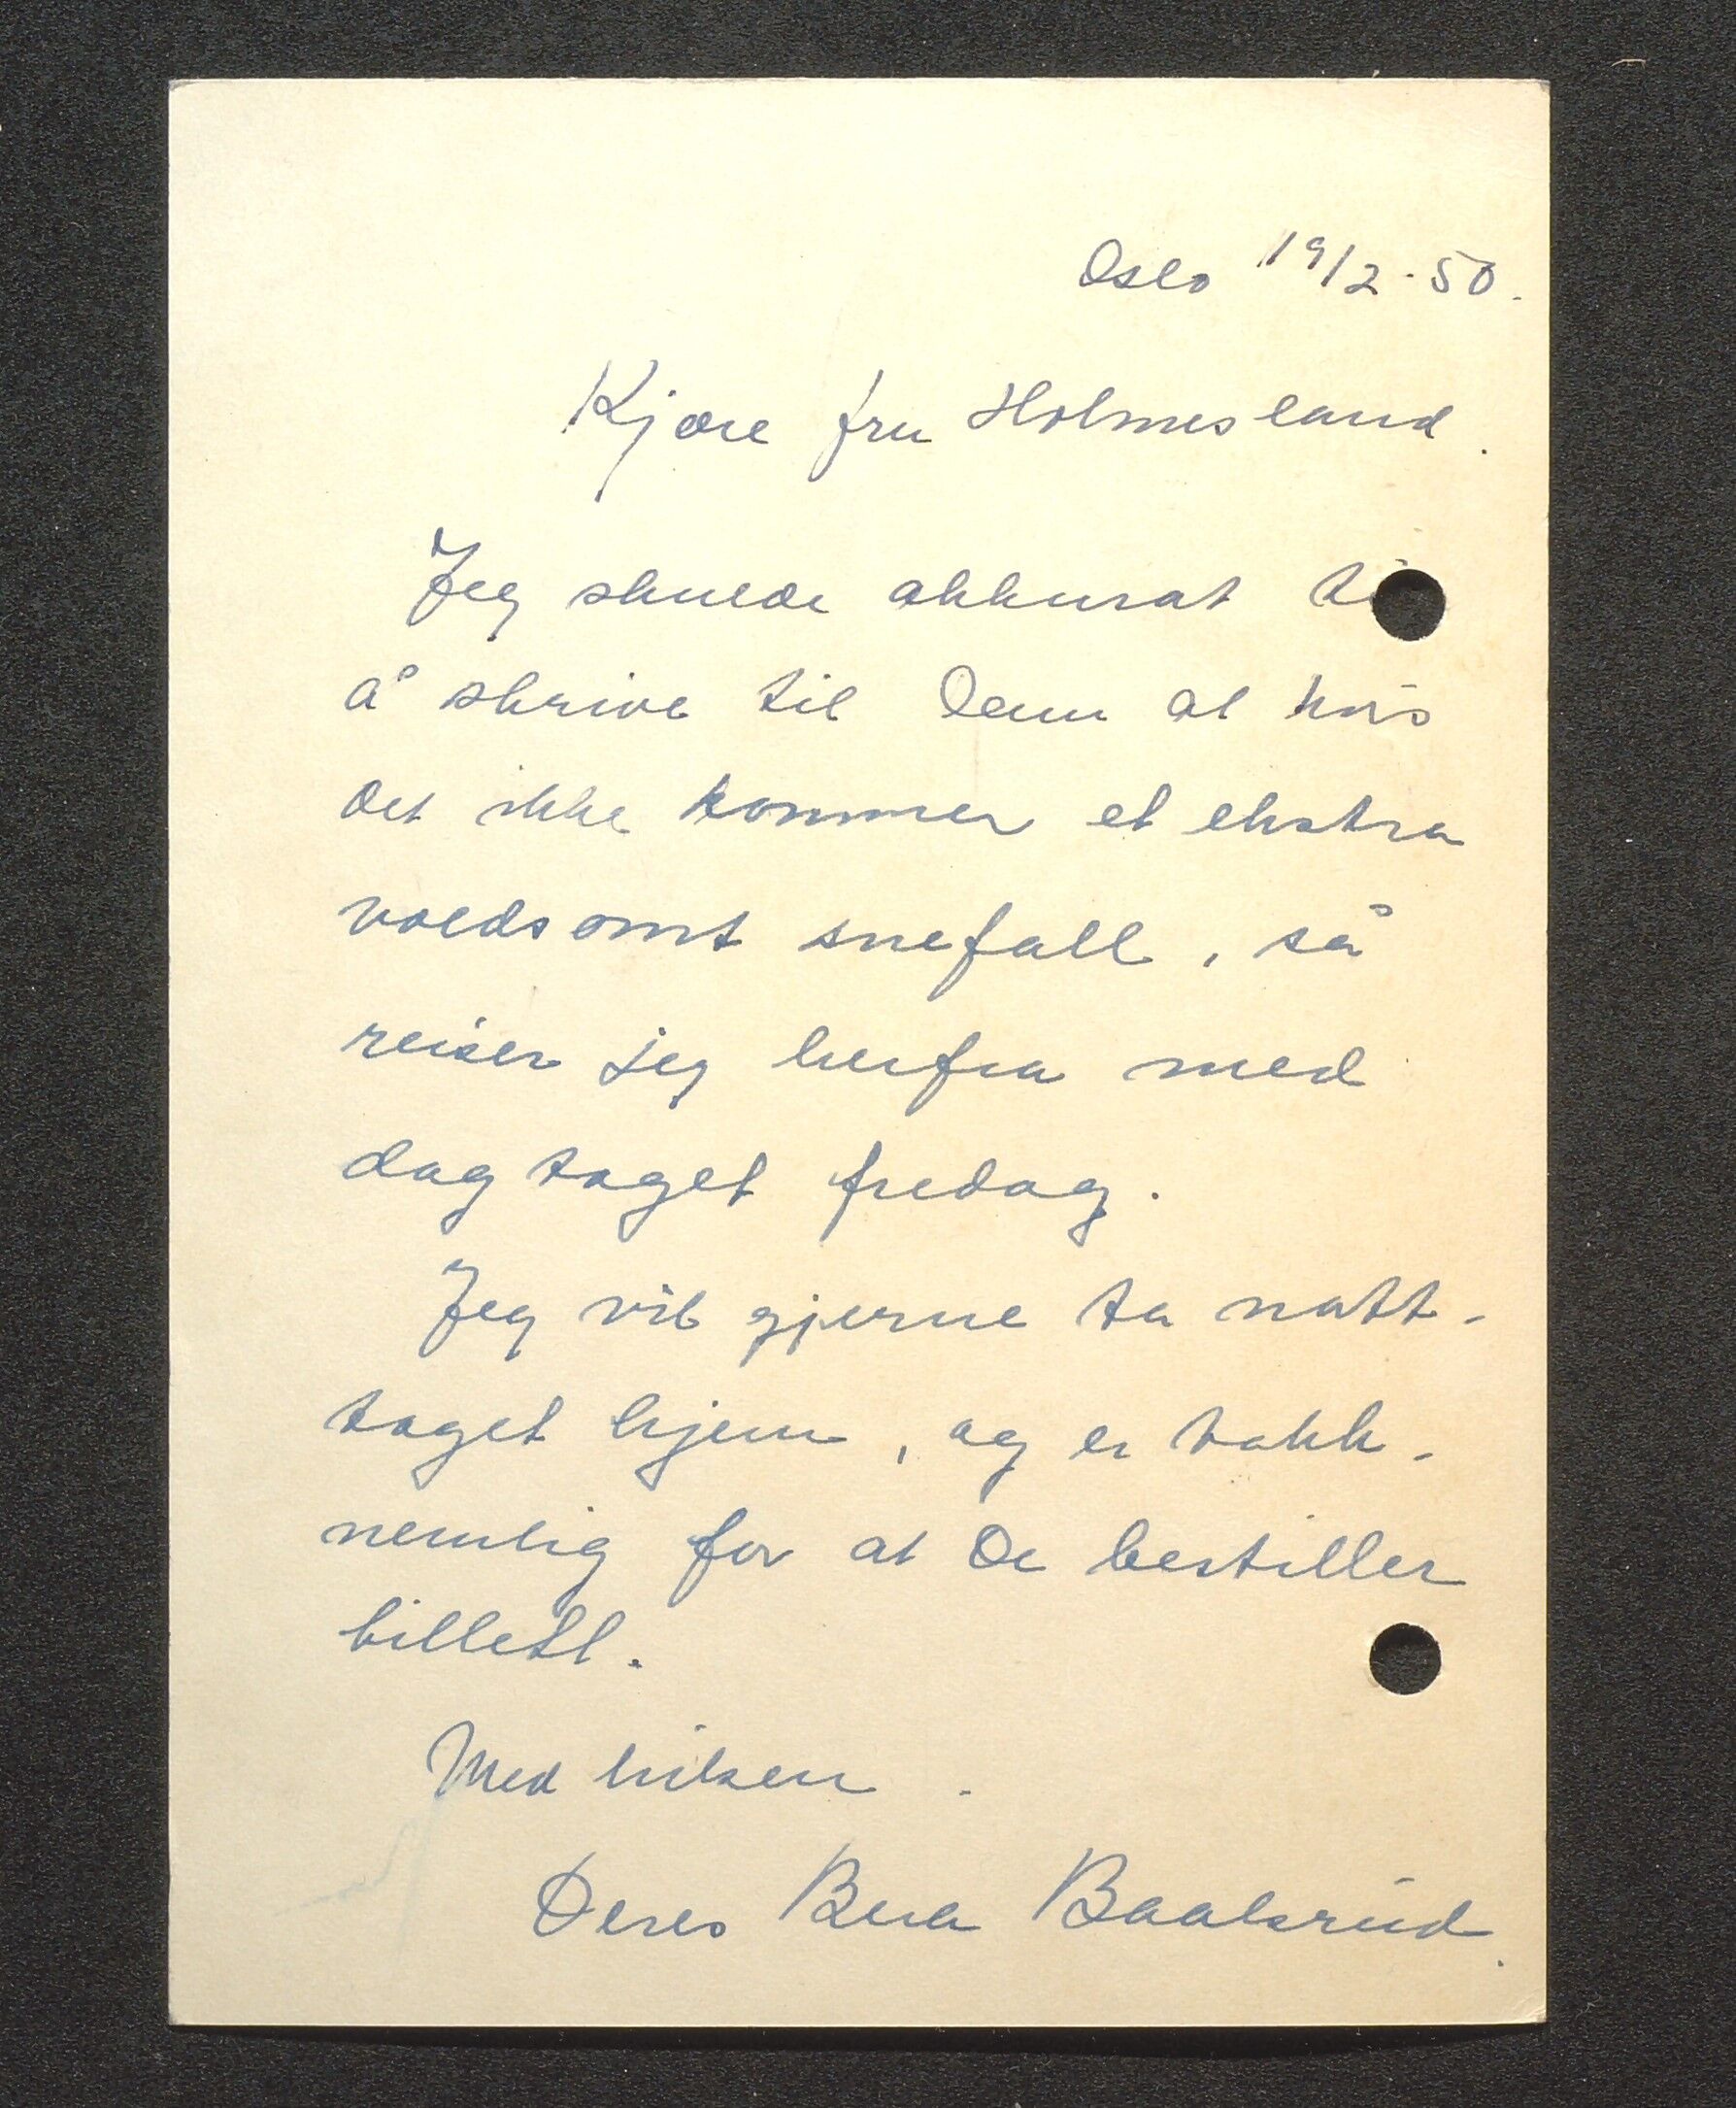 Oslo 19/2-50.
Kjære fru Holmesland.
Jeg skulde akkurat til
å skrive til Dem at hvis
det ikke kommer et ekstra
voldsomt snefall, så
reiser jeg herfra med
dagtoget fredag.
Jeg vil gjerne ta natt-
toget hjem, og er takk-
nemlig for at De bestiller
billett.
Med hilsen.
Deres Bera Baalsrud.